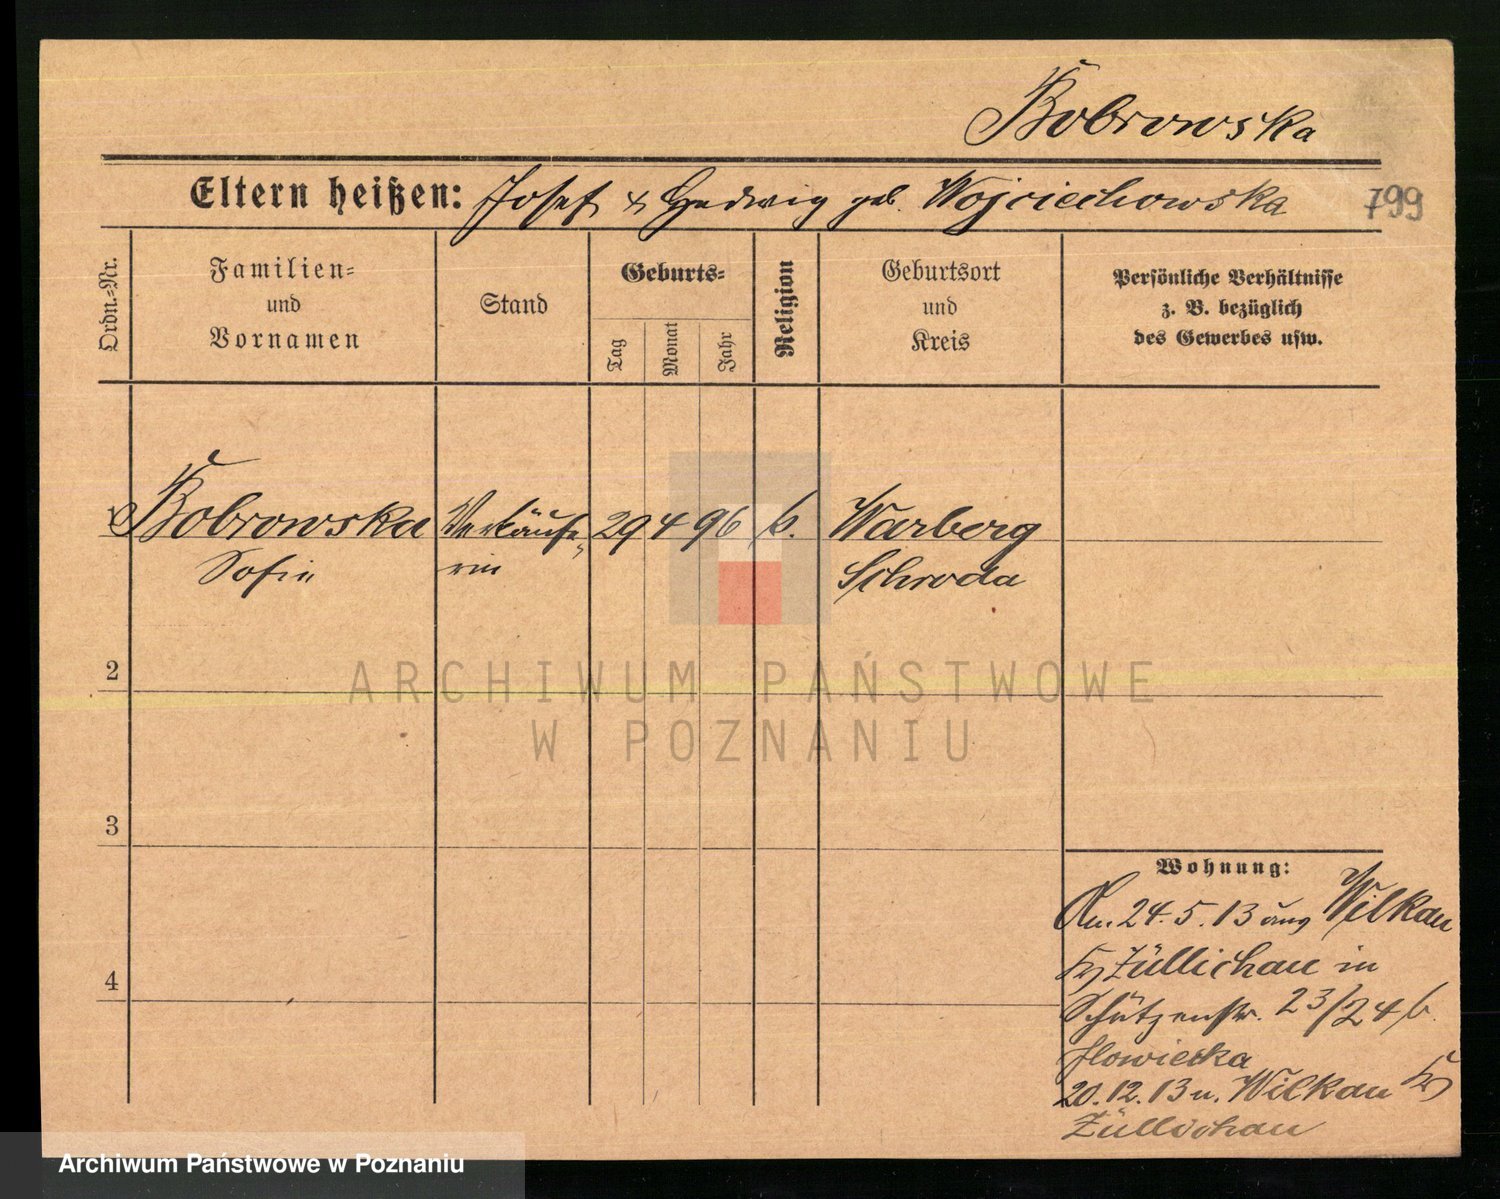 Bobrowska
Eltern heißen: Josef & Hedwig geb. Wojciechowska 799
Ordn.-Nr.
Familien-
und
Vornamen
Stand
Geburts-
Tag
Monat
Jahr
Religion
Geburtsort
und
Kreis
Persönliche Verhältnisse
z. B. bezüglich
des Gewerbes usw.
1 Bobrowska Verkäufe- 29 4 96 k. Warberg
Sofie rin Schroda
2
ARCHIWUM PAŃSTWOWE
W POZNANIU
3
4
Wohnung:
Am 24.5.13 aus Wilkau
Kr Züllichau in
Schützenstr. 23/24 b.
Ilowiecka
20.12.13 n. Wilkau Kr
Züllichau
Archiwum Państwowe w Poznaniu